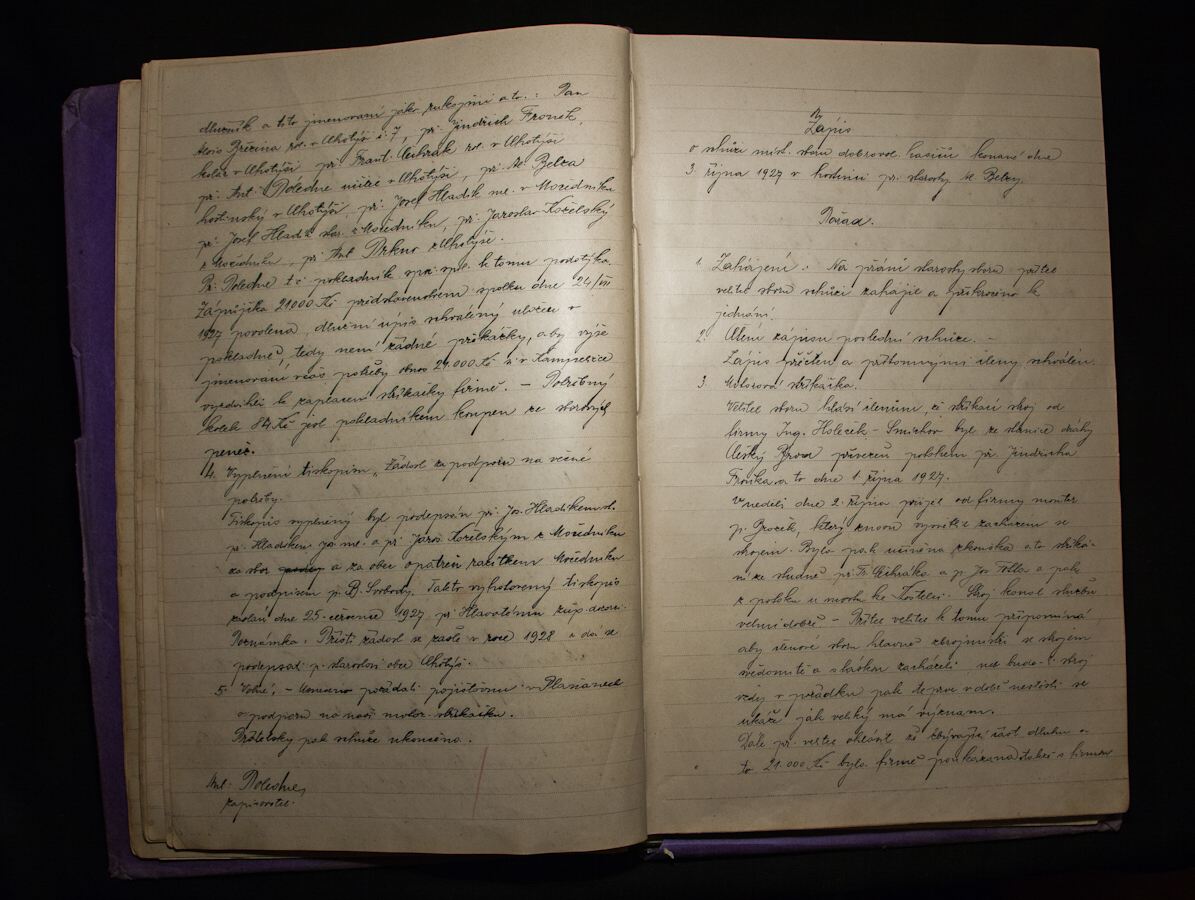 dlužník a tito jmenovaní jako rukojmí a to: Pan
Alois Březina rol. v Lhotýši č. 7, př. Jindřich Froněk,
kolář v Lhotýši př. Frant. Cihrák rol. v Lhotýši
př. Ant. Poledne učitel v Lhotýši, př. Al. Belza
hostinský v Lhotýši, př. Josef Hladík ml. v Močedníku
př. Josef Hladík star. z Močedníku, př. Jaroslav Kořelský
z Močedníku, př. Ant. Brkno z Lhotýše.
Př. Poledne t.č. pokladník k tomu podotýká
Zápůjčka 21.000 Kč představenstvem spolku dne 24/VII
1927 povolena, dlužní úpis schválený uložen v
pokladně, tedy není žádné překážky, aby výše
jmenovaní včas potřeby obnos 21.000 Kč v Kampeličce
vyzdvihli k zaplacení stříkačky firmě. – Potřebný
kolek 84 Kč jest pokladníkem koupen ze sborových
peněz.
4. Vyplnění tiskopisu „Žádost za podporu na věcné
potřeby.
Tiskopis vyplněný byl podepsán př. Jos. Hladíkem st.
př. Hladíkem ml. a př. Jaros. Kořelským z Močedníku
za sbor a za obec opatřen razítkem Močedníku
a podpisem p. B. Svobody. Takto vyhotovený tiskopis
zaslán dne 25. července 1927 př. Hlavatému žup. dozor.
Poznámka: Příští žádost se zašle v roce 1928 a dá se
podepsat p. starostovi obce Lhotýš.
5. Volné. – Usneseno požádati pojišťovnu v Plaňanech
o podporu na naši motor. stříkačku.
Přátelsky pak schůze ukončena.
Ant. Poledne,
zapisovatel.
Zápis
o schůzi míst. sboru dobrovol. hasičů konané dne
3. října 1927 v hostinci př. starosty Al. Belzy.
Pořad.
1. Zahájení: Na přání starosty sboru přítel
velitel sboru schůzi zahájil a přikročeno k
jednání.
2. Čtení zápisu poslední schůze. –
Zápis přečten a přítomnými členy schválen.
3. Motorová stříkačka.
Velitel sboru hlásí členům, že stříkací stroj od
firmy Ing. Holeček – Smíchov byl ze stanice dráhy
Český Brod přivezen potahem př. Jindřicha
Froňka a to dne 1. října 1927.
V neděli dne 2. října přijel od firmy montér
p. Broček, který znovu vysvětlil zacházení se
strojem. Byla pak učiněna zkouška a to stříká-
ní ze studně př. Fr. Cihráka a p. Jos. Totla a pak
z potoka u mostu ke Kostelci. Stroj konal službu
velmi dobře – Přítel velitel k tomu připomíná,
aby členové sboru hlavně zbrojmistři se strojem
svědomitě a s láskou zacházeli, neb bude-li stroj
vždy v pořádku pak teprve v době neštěstí se
ukáže jak veliký má význam.
Dále př. velitel ohlásil že zbývající část dluhu a
to 21.000 Kč byla firmě poukázána takže s firmou